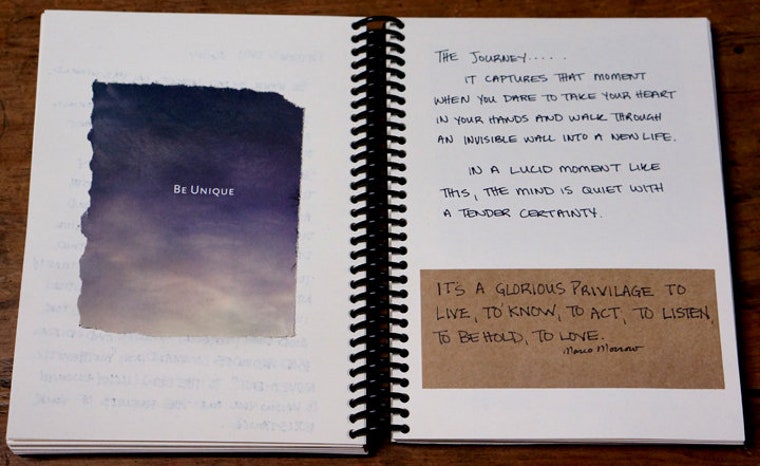 BE UNIQUE
THE JOURNEY.....
IT CAPTURES THAT MOMENT
WHEN YOU DARE TO TAKE YOUR HEART
IN YOUR HANDS AND WALK THROUGH
AN INVISIBLE WALL INTO A NEW LIFE.
IN A LUCID MOMENT LIKE
THIS, THE MIND IS QUIET WITH
A TENDER CERTAINTY.
IT'S A GLORIOUS PRIVILAGE TO
LIVE, TO KNOW, TO ACT, TO LISTEN,
TO BEHOLD, TO LOVE.
Marco Morrow